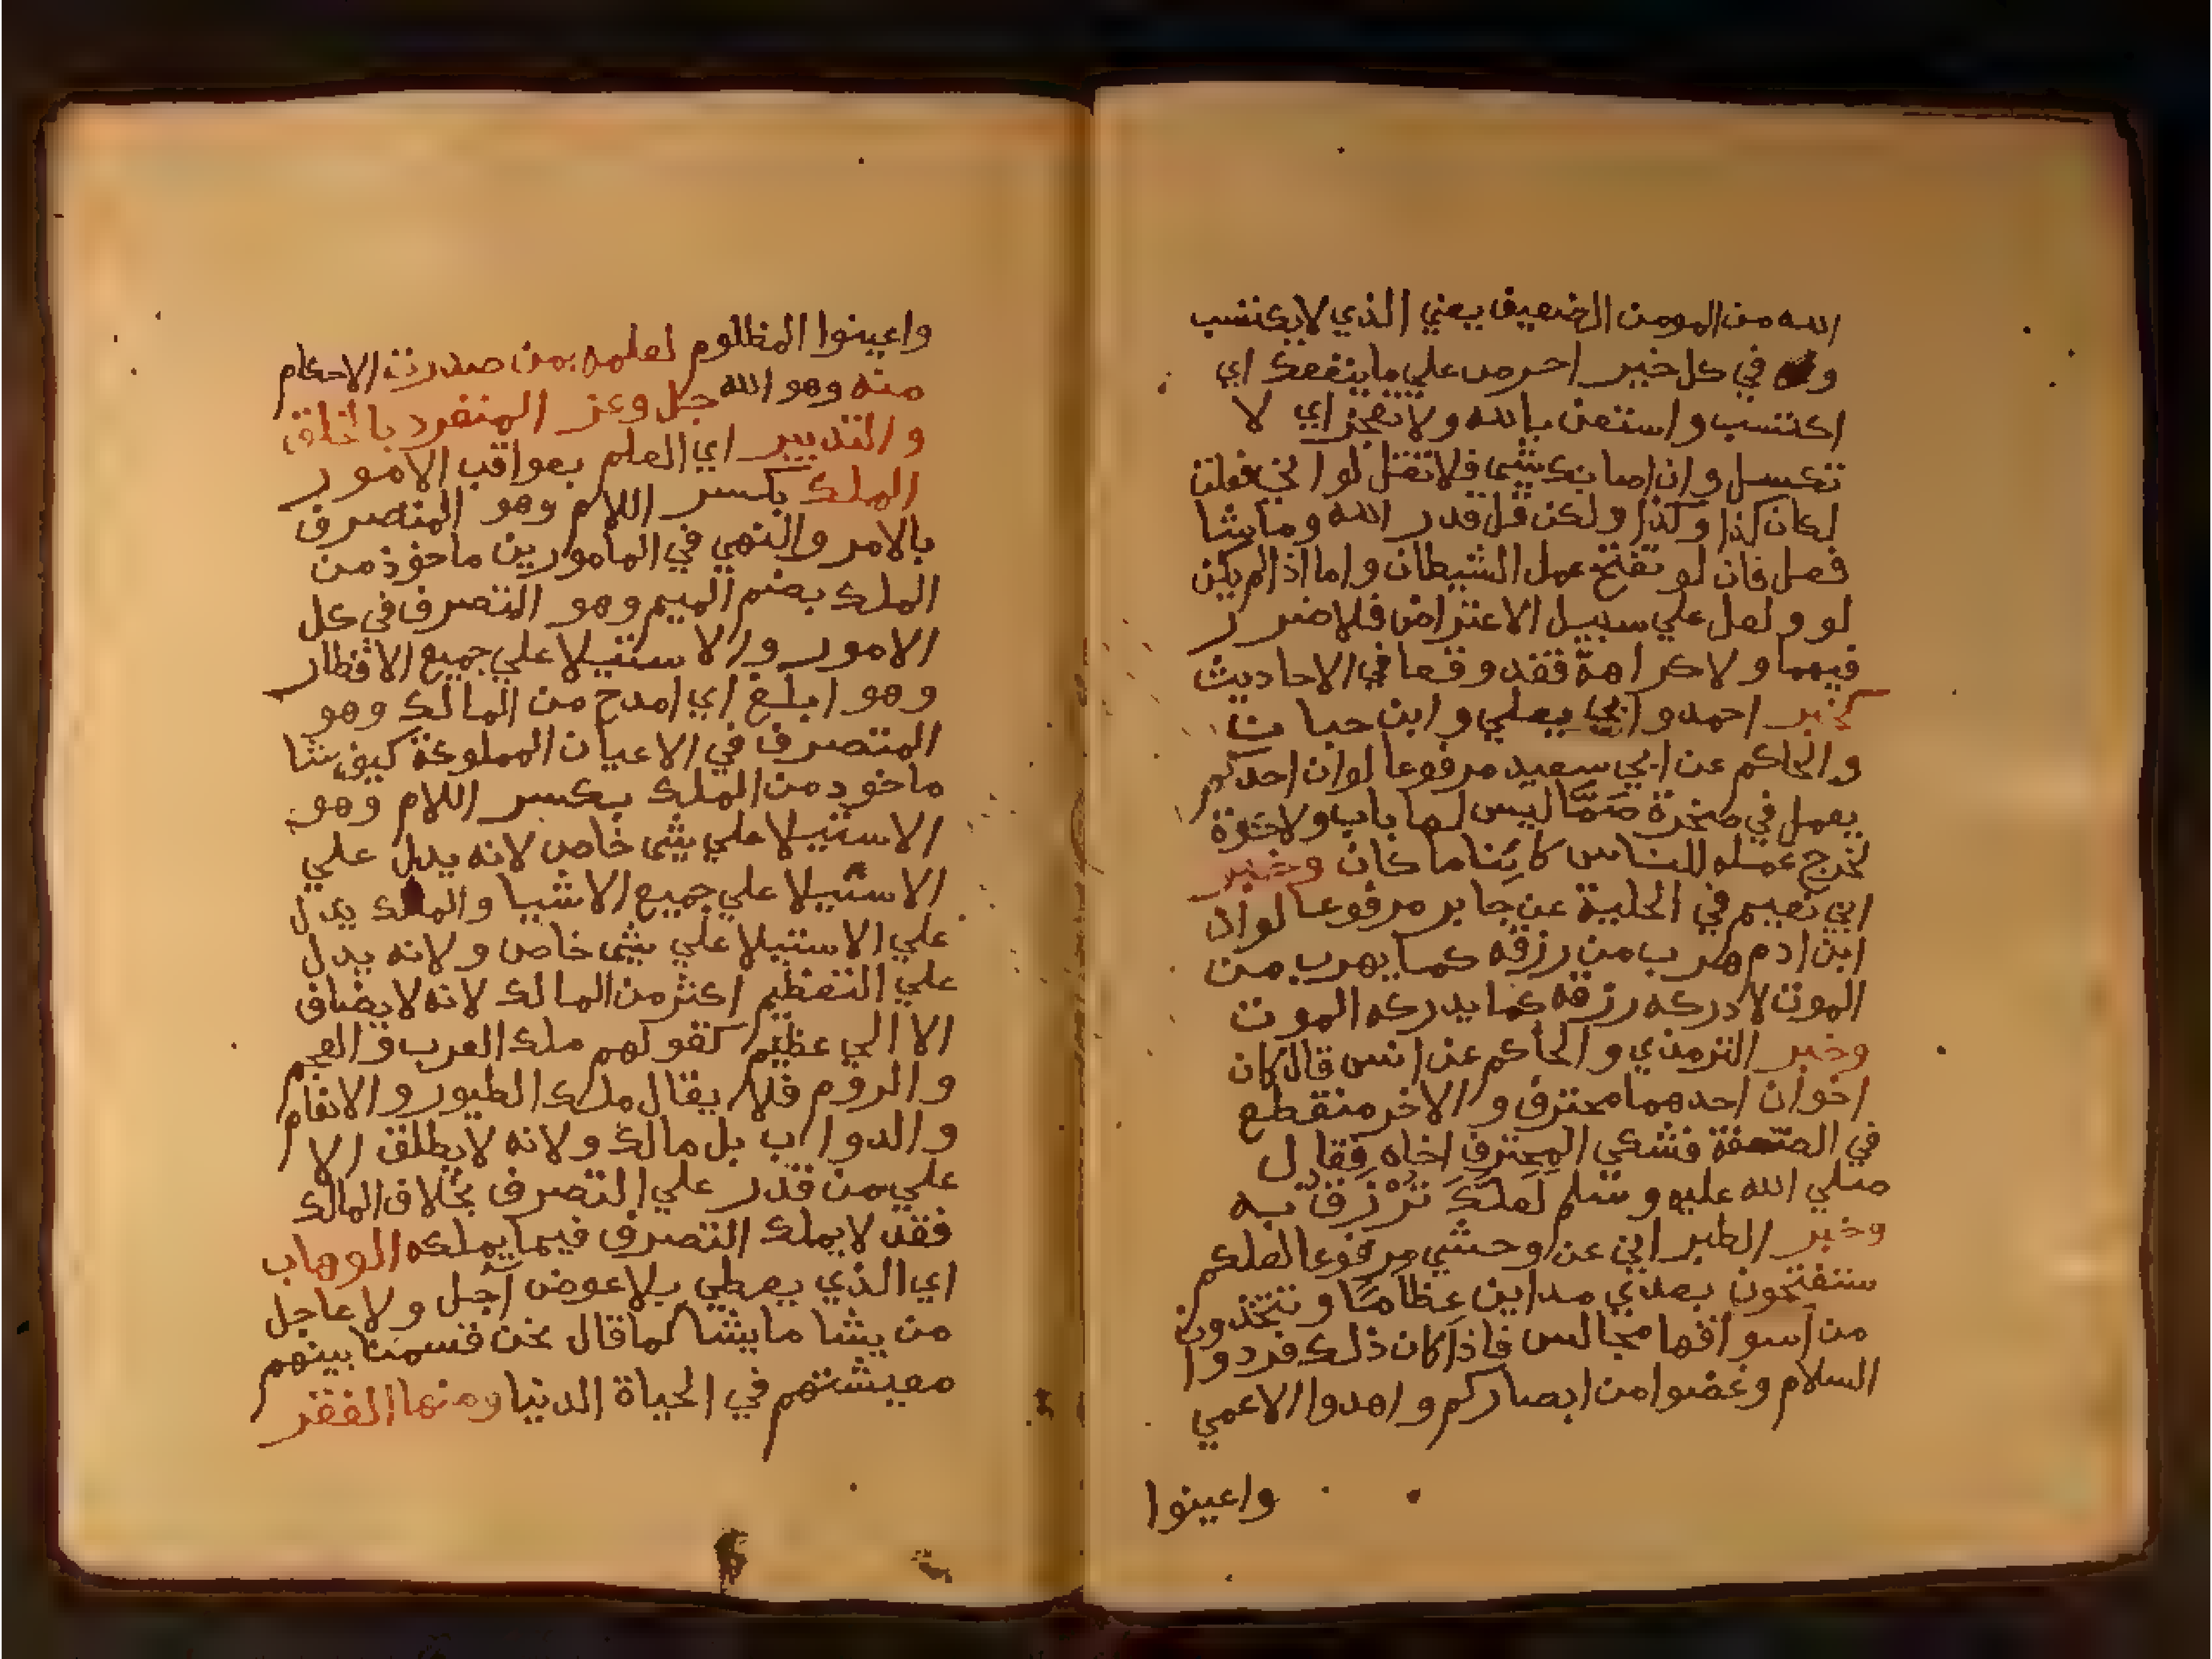 الله من المومن الضعيف يعني الذي لا يكتسب
و في كل خير احرص علي ما ينفعك اي
اكتسب واستعن بالله ولا تعجز اي لا
تكسل وان اصابك شي فلا تقل لو اني فعلت
لكان كذا وكذا ولكن قل قدر الله وما شا
فعل فان لو تفتح عمل الشيطان واما اذا لم يكن
لو ولعل علي سبيل الاعتراض فلا ضرر
فيهما ولا كراهة فقد وقعا في الاحاديث
كخبر احمد وابي يعلي وابن حبان
والحاكم عن ابي سعيد مرفوعا لو ان احدكم
يعمل في صخرة صمّا ليس لها باب ولا كوة
لخرج عمله للناس كائنا ما كان وخبر
ابي نعيم في الحلية عن جابر مرفوعا لو ان
ابن ادم هرب من رزقه كما يهرب من
الموت لادركه رزقه كما يدركه الموت
وخبر الترمذي والحاكم عن انس قال كان
اخوان احدهما محترف والاخر منقطع
في فشكي المحترف اخاه فقال
صلي الله عليه وسلم لَعلكَ تُرْزَق به
وخبر الطبراني عن وحشي مرفوعا لعلكم
ستفتحون بعدي مداين عظاما وتتخذون
من اسواقها مجالس فاذا كان ذلك فردوا
السلام وغضوا من ابصاركم واهدوا الاعمي
واعينوا
واعينوا المظلوم لعلمه بمن صدرت الاحكام
منه وهو الله جل وعز المنفرد بالخلق
والتدبير اي العلم بعواقب الامور
الملك بكسر اللام وهو المتصرف
بالامر والنهي في المامورين ماخوذ من
الملك بضم الميم وهو التصرف في كل
الامور والاستيلا علي جميع الاقطار
وهو ابلغ اي امدح من المالك وهو
المتصرف في الاعيان المملوكة كيف شا
ماخود من الملك بكسر اللام وهو
الاستيلا علي شي خاص لانه يدل علي
الاستيلا علي جميع الاشيا والمالك يدل
علي الاستيلا علي شي خاص ولانه يدل
علي التعظيم اكثر من المالك لانه لا يضاف
الا الي عظيم كقولهم ملك العرب والعجم
والروم فلا يقال ملك الطيور والانعام
والدواب بل مالك ولانه لا يطلق الا
علي من قدر علي التصرف بخلاف المالك
فقد لا يملك التصرف فيما يملكه الوهاب
اي الذي يعطي بلا عوض آجل ولا عاجل
من يشا ما يشا كما قال نحن قسمنا بينهم
معيشتهم في الحياة الدنيا ومنها الفقر